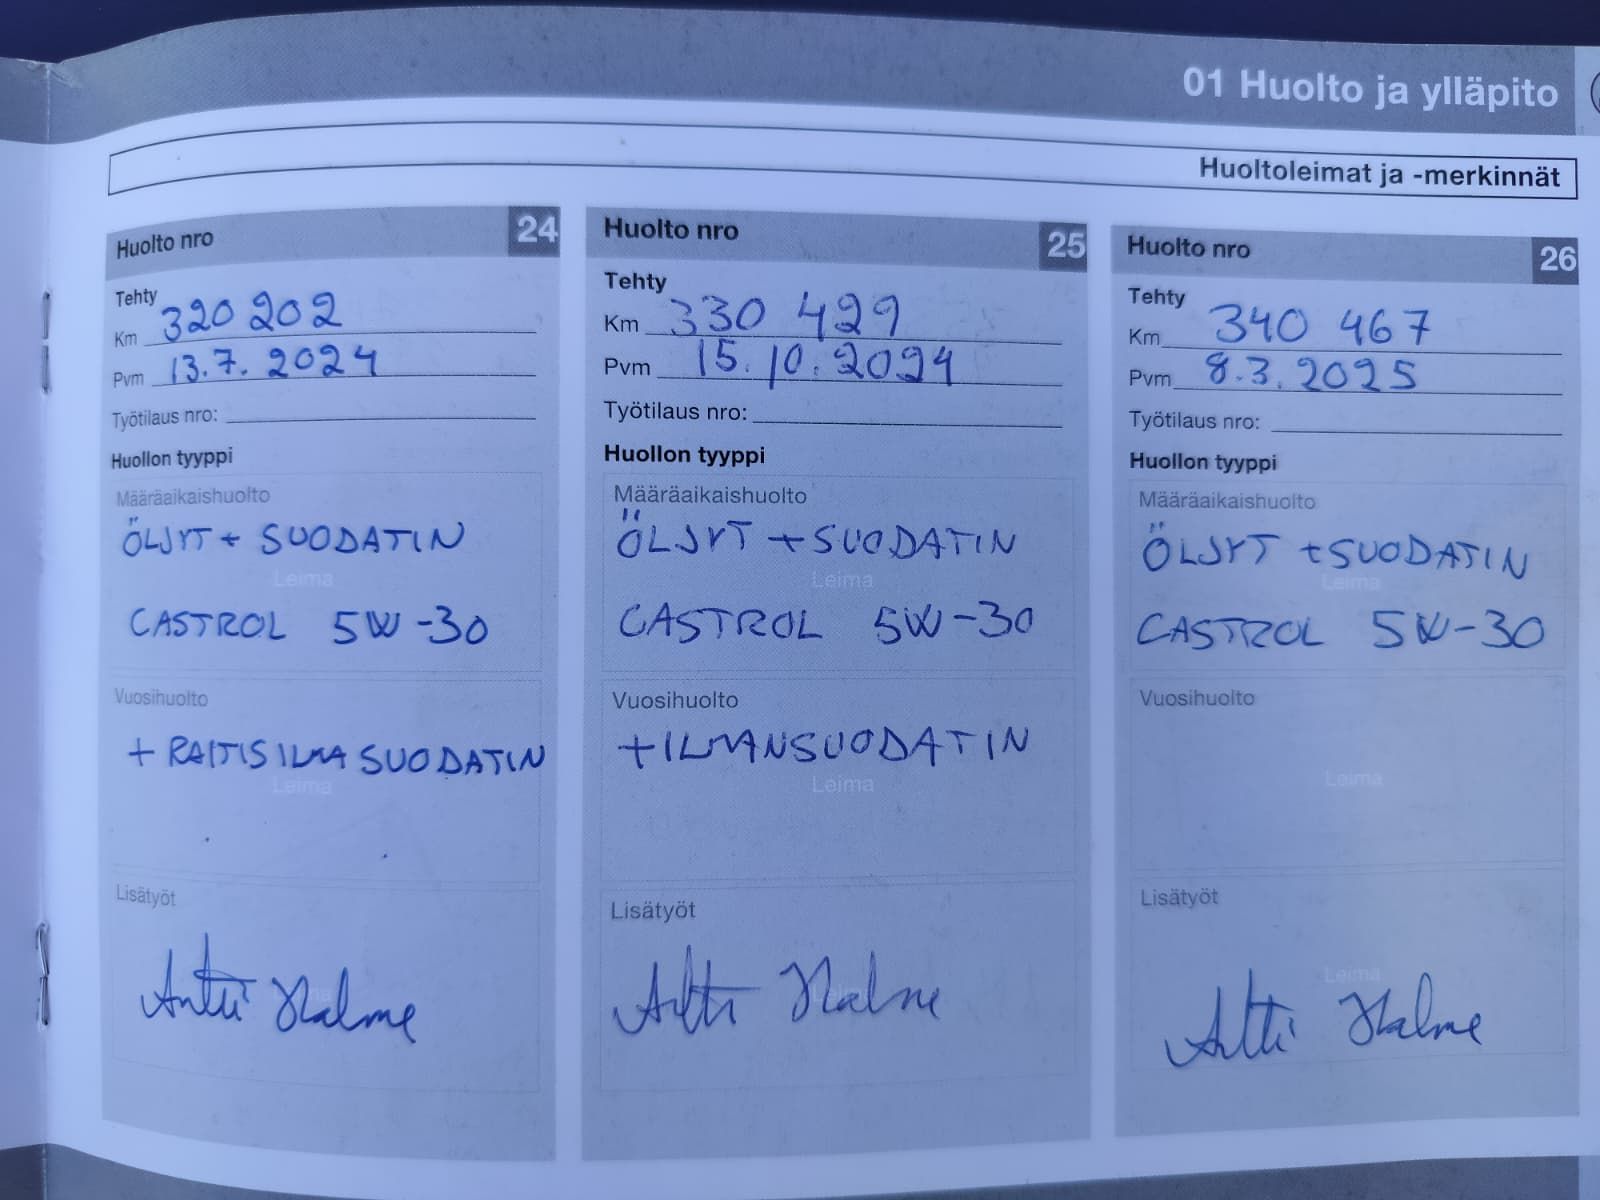 01 Huolto ja ylläpito
Huoltoleimat ja -merkinnät
Huolto nro 24
Tehty
Km 320 202
Pvm 13.7.2024
Työtilaus nro:
Huollon tyyppi
Määräaikaishuolto
ÖLJYT + SUODATIN
Leima
CASTROL 5W-30
Vuosihuolto
+ RAITISILMA SUODATIN
Leima
Lisätyöt
Antti Halme
Huolto nro 25
Tehty
Km 330 429
Pvm 15.10.2024
Työtilaus nro:
Huollon tyyppi
Määräaikaishuolto
ÖLJYT + SUODATIN
Leima
CASTROL 5W-30
Vuosihuolto
+ ILMANSUODATIN
Leima
Lisätyöt
Antti Halme
Huolto nro 26
Tehty
Km 340 467
Pvm 8.3.2025
Työtilaus nro:
Huollon tyyppi
Määräaikaishuolto
ÖLJYT + SUODATIN
Leima
CASTROL 5W-30
Vuosihuolto
Leima
Lisätyöt
Leima
Antti Halme